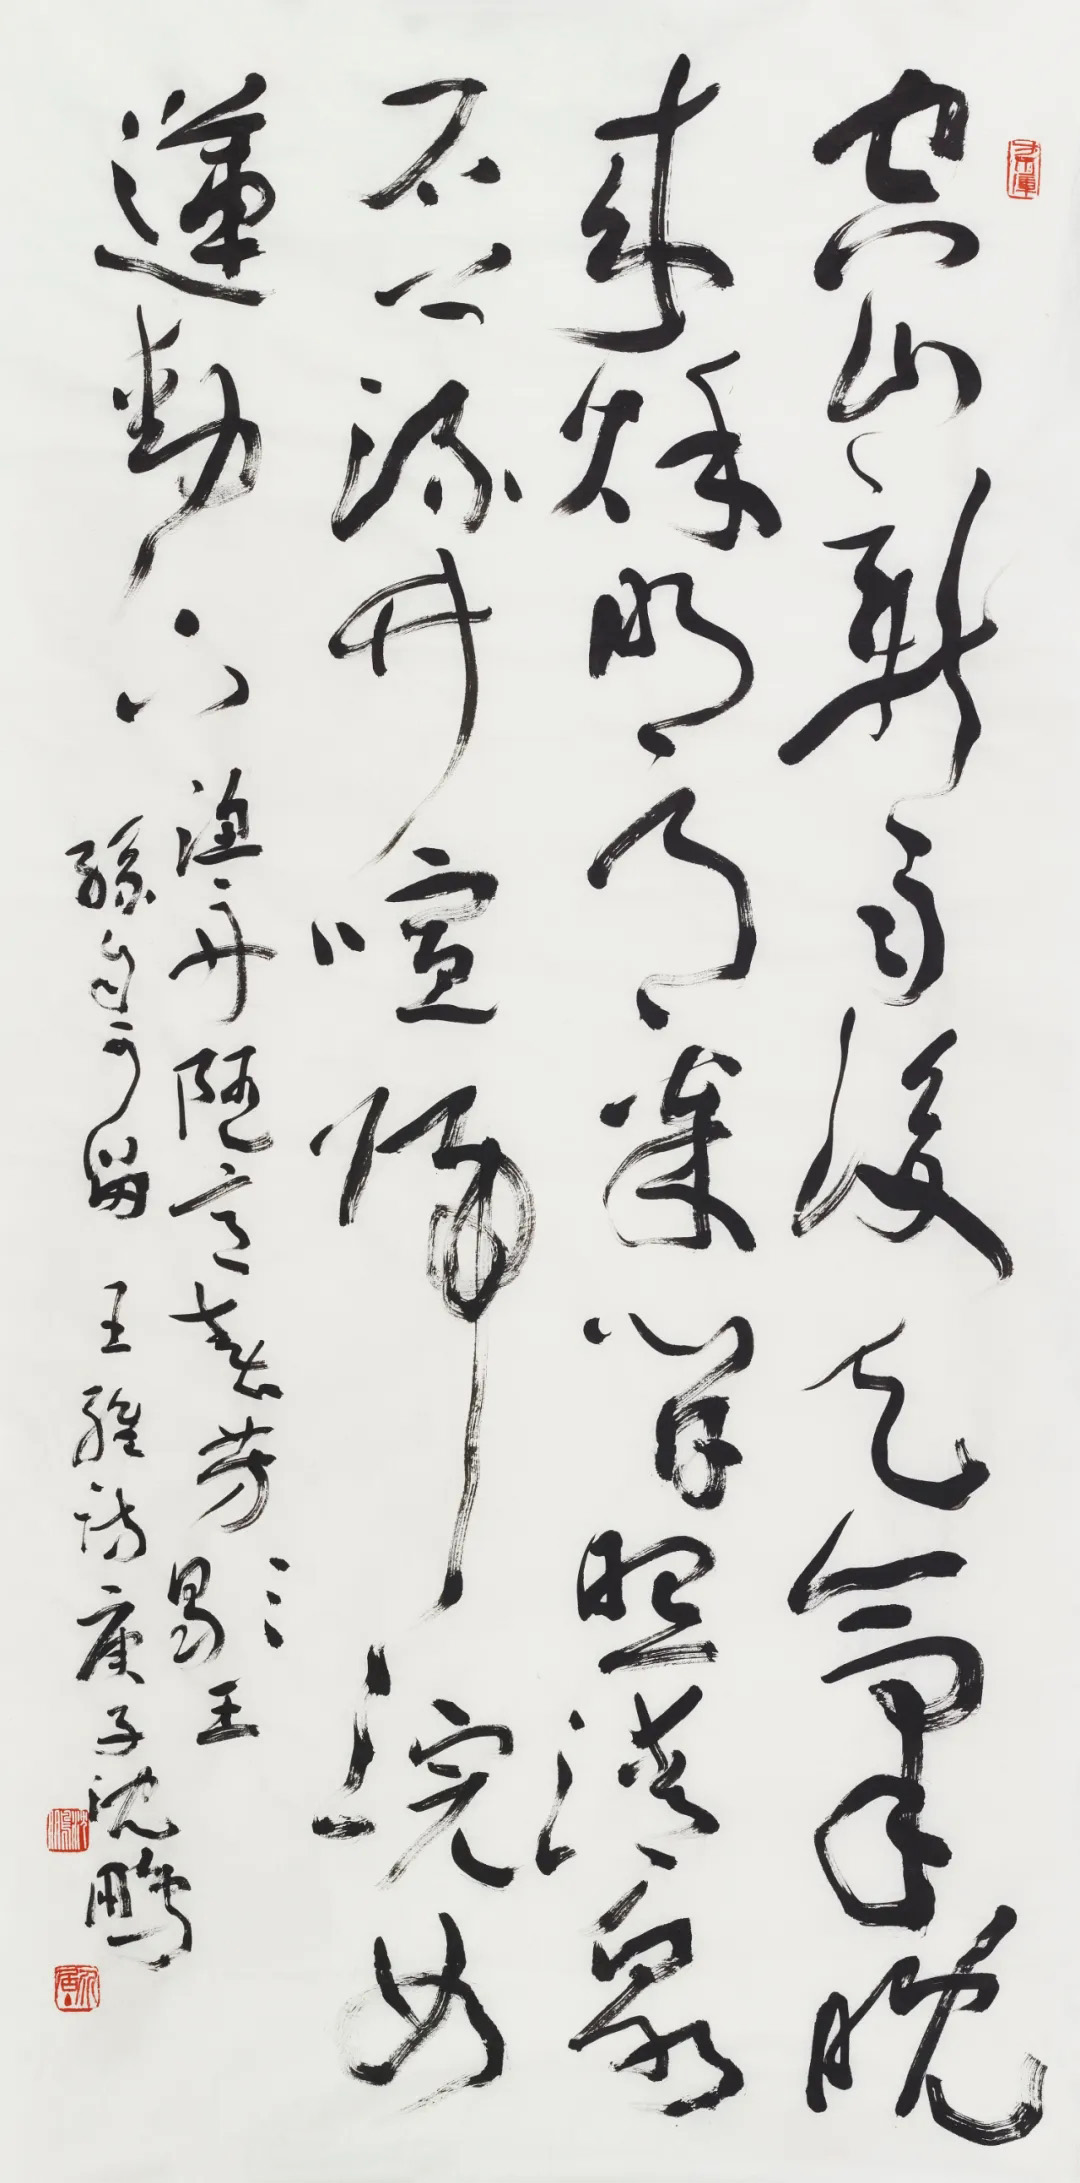 空山新雨後天氣晚
来秋明月松間照清泉
石上流竹喧歸浣女
蓮動下漁舟随意春芳歇王
孫自可留 王維詩庚子沈鵬